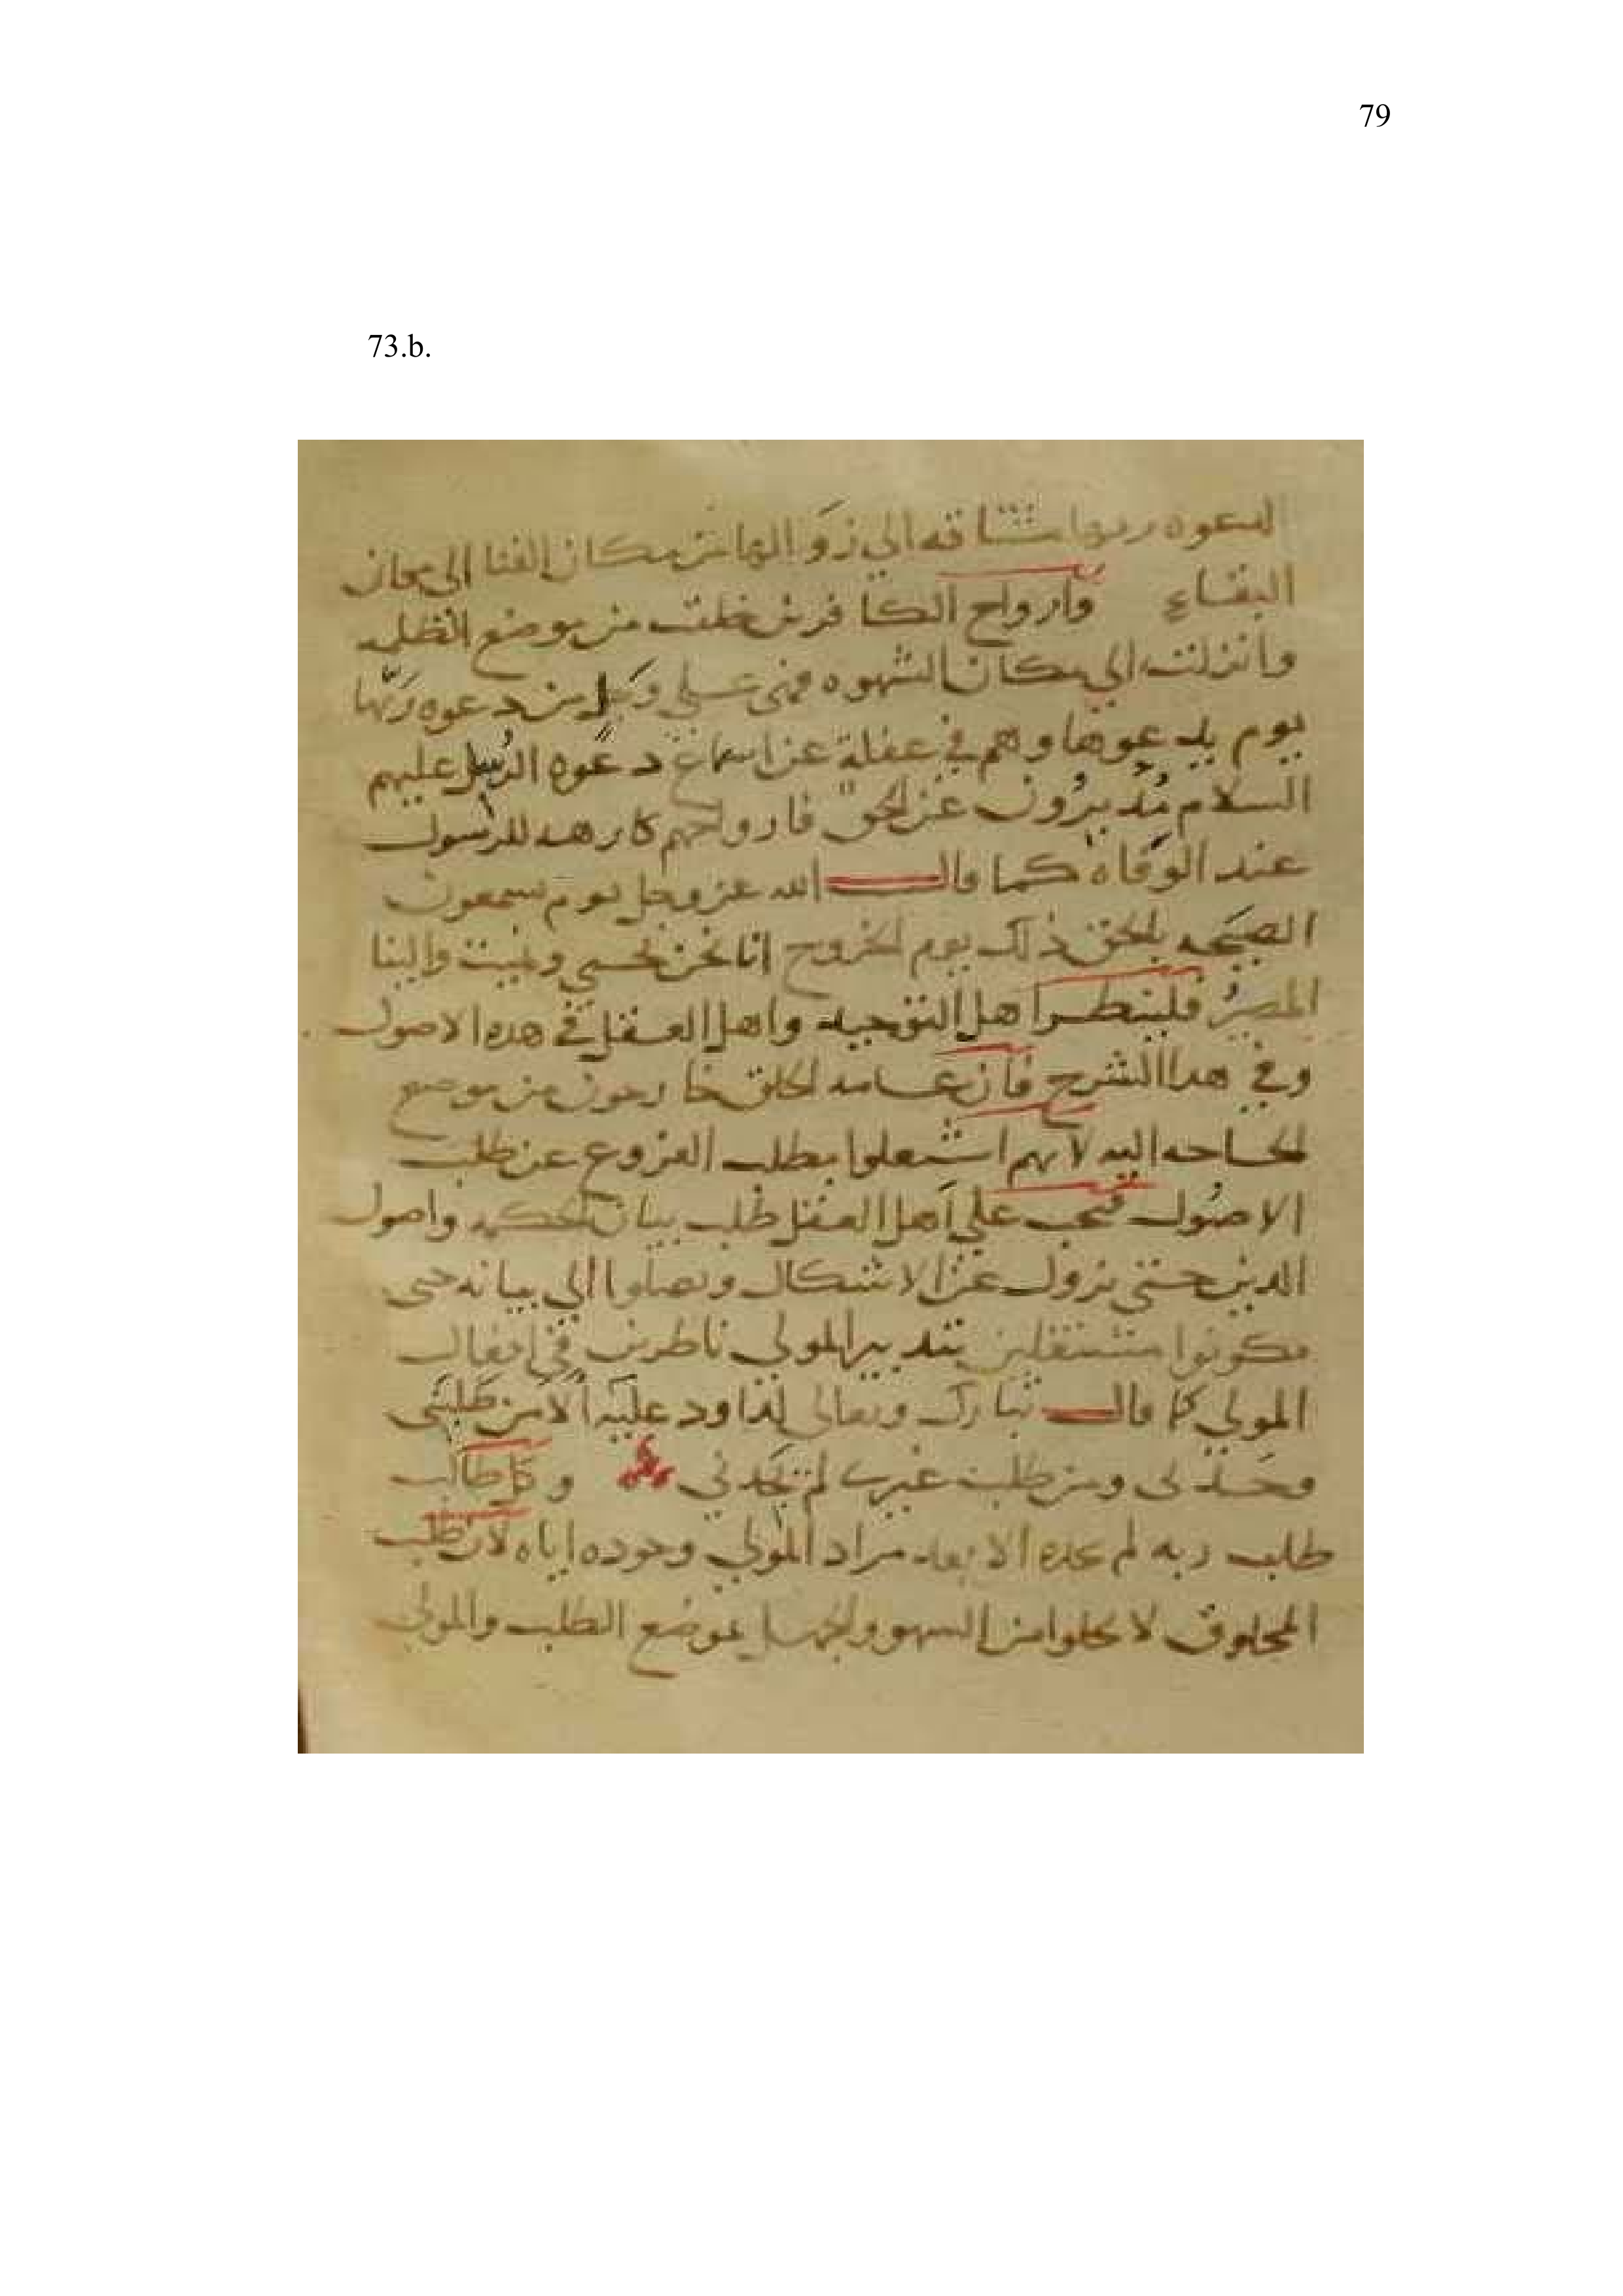 79
73.b.
لدعوه ربها مشتاقه الي زوالها من مكان الفنا الى مجاز
البقاء وارواح الكافرين خلقت من موضع الظلمه
وانزلت الي مكان الشهوه فهى على وجل من دعوه ربها
يوم يدعوها وهم في غفلة عن اسماع دعوه الرسل عليهم
السلام مدبرون عن الحق فارواحهم كارهه للرسول
عند الوفاه كما قال الله عز وجل يوم يسمعون
الصيحه بالحق ذلك يوم الخروج انا نحن نحيي ونميت والينا
المصير فلينظر اهل التوحيد واهل العقل في هذه الاصول
وفي هذا الشرح فان عامه الخلق خارجون من موضع
الحاجه اليه لانهم اشتغلوا بطلب الفروع عن طلب
الاصول فيجب علي اهل العقل طلب بيان الحكمه واصول
الدين حتى يزول عن الاشكال ويصلوا الي بيانه حتى
يكونوا مشتغلين بتدبير المولي ناظرين في افعال
المولي كما قال تبارك وتعالى لداود عليه ال من طلبنى
وحدنى ومن طلب غيرى لم يجدني وكل طالب
طلب ربه لم يجده الا بعد مراد المولي وجوده اياه لان طلب
المخلوق لا يخلوا من السهو والجهل بموضع الطلب والمولى